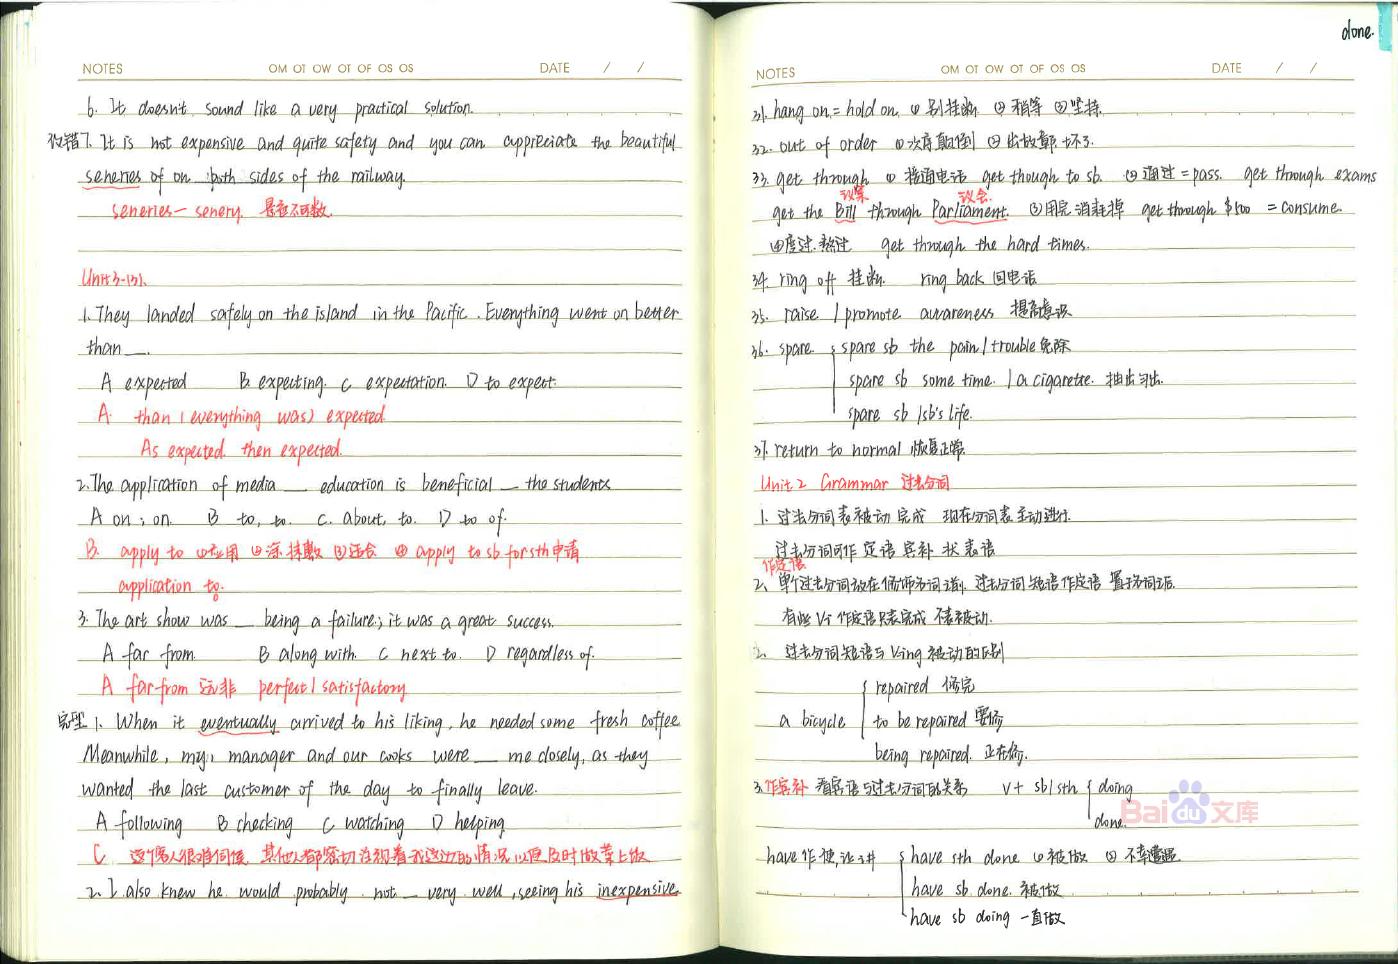 NOTES OM OT OW OT OF OS OS DATE / /
6. It doesn't sound like a very practical solution.
改错 7. It is not expensive and quite safety and you can appreciate the beautiful
seneries of on both sides of the railway.
seneries — senery 是不可数
Unit 3-131.
1. They landed safely on the island in the Pacific. Everything went on better
than __.
A expected B expecting. C expectation. D to expect.
A. than (everything was) expected
As expected. then expected.
2. The application of media __ education is beneficial __ the students
A on; on. B to, to. C. about, to. D to of.
B. apply to ①应用 ②涂抹敷 ③适合 ④ apply to sb for sth 申请
application to
3. The art show was __ being a failure; it was a great success.
A far from. B along with. C next to. D regardless of.
A far from 远非 perfect / satisfactory
完型 1. When it eventually arrived to his liking, he needed some fresh coffee
Meanwhile, my manager and our cooks were __ me closely, as they
wanted the last customer of the day to finally leave.
A following B checking C watching D helping
C. 这个客人很难伺候 其他人都密切注视着我这边的情况以便及时做菜上饭
2. I also knew he would probably not __ very well, seeing his inexpensive
done.
NOTES OM OT OW OT OF OS OS DATE / /
31. hang on = hold on. ①别挂断 ②稍等 ③坚持.
32. out of order ①次序颠倒 ②出故障 坏了.
33. get through ①接通电话 get though to sb. ②通过 = pass. get through exams
议案 议会.
get the Bill through Parliament. ③用完 消耗掉 get through $500 = consume.
④度过.熬过 get through the hard times.
34. ring off 挂断. ring back 回电话
35. raise / promote awareness 提高意识
36. spare spare sb the pain / trouble 免除
spare sb some time. / a cigarette. 抽出 匀出.
spare sb / sb's life.
37. return to normal 恢复正常
Unit 2 Grammar 过去分词
1. 过去分词表被动 完成 现在分词表主动进行.
过去分词可作 定语 宾补 状 表语
作定语
2. 单个过去分词放在修饰名词之前. 过去分词短语作定语 置于名词之后.
有些 vi 作定语只表完成 不表被动.
2. 过去分词短语与 V-ing 被动的区别
repaired 修完
a bicycle to be repaired 要修
being repaired. 正在修.
3. 作宾补 看宾语与过去分词的关系 V + sb / sth doing
done.
Baidu文库
have 作使,让讲 have sth done ①被做 ②不幸遭遇
have sb done. 被做
have sb doing 一直做